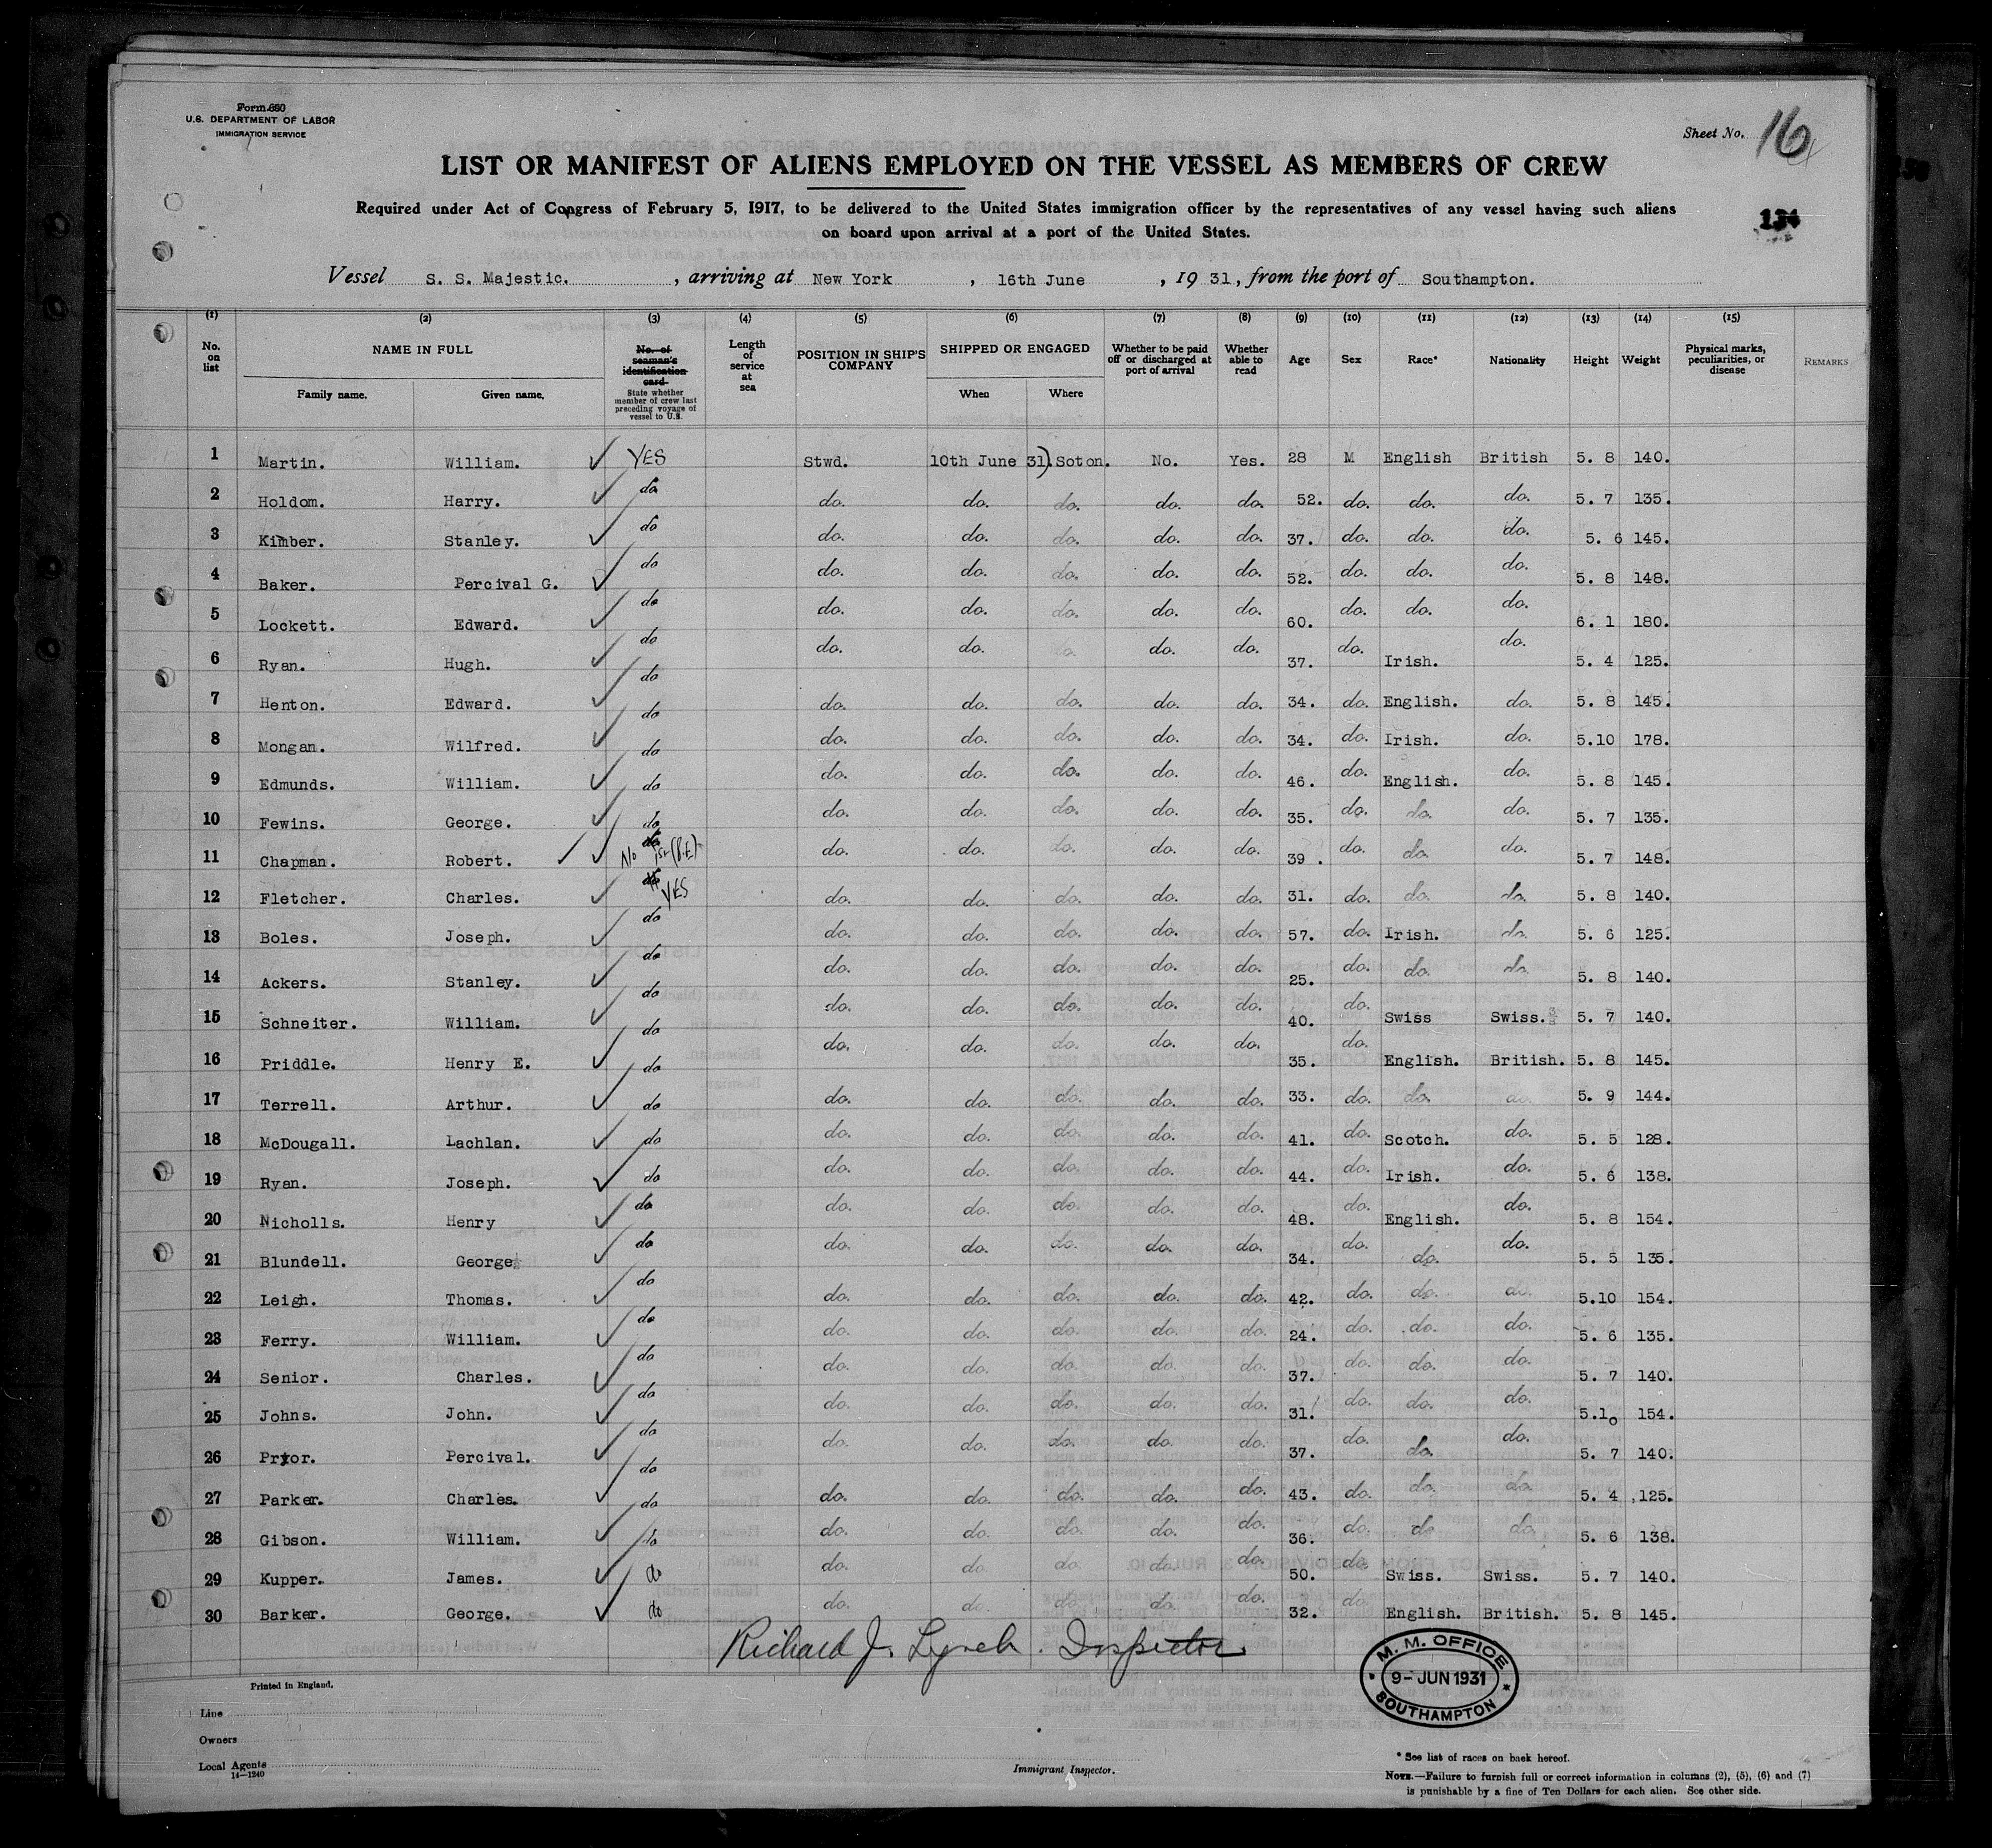 Form 680
U.S. DEPARTMENT OF LABOR
IMMIGRATION SERVICE
Sheet No. 16
LIST OR MANIFEST OF ALIENS EMPLOYED ON THE VESSEL AS MEMBERS OF CREW
Required under Act of Congress of February 5, 1917, to be delivered to the United States immigration officer by the representatives of any vessel having such aliens
on board upon arrival at a port of the United States.
134
Vessel S. S. Majestic. , arriving at New York , 16th June , 19 31, from the port of Southampton.
(1) (2) (3) (4) (5) (6) (7) (8) (9) (10) (11) (12) (13) (14) (15)
No. on list NAME IN FULL Family name. Given name. No. of seaman's identification card. State whether member of crew last preceding voyage of vessel to U.S. Length of service at sea POSITION IN SHIP'S COMPANY SHIPPED OR ENGAGED When Where Whether to be paid off or discharged at port of arrival Whether able to read Age Sex Race* Nationality Height Weight Physical marks, peculiarities, or disease REMARKS
1 Martin. William. ✓ YES Stwd. 10th June 31). Soton. No. Yes. 28 M English British 5. 8 140.
2 Holdom. Harry. ✓ do do. do. do. do. do. 52. do. do. do. 5. 7 135.
3 Kimber. Stanley. ✓ do do. do. do. do. do. 37. do. do. do. 5. 6 145.
4 Baker. Percival G. ✓ do do. do. do. do. do. 52. do. do. do. 5. 8 148.
5 Lockett. Edward. ✓ do do. do. do. do. do. 60. do. do. do. 6. 1 180.
6 Ryan. Hugh. ✓ do do. do. do. do. do. 37. do. Irish. do. 5. 4 125.
7 Henton. Edward. ✓ do do. do. do. do. do. 34. do. English. do. 5. 8 145.
8 Mongan. Wilfred. ✓ do do. do. do. do. do. 34. do. Irish. do. 5.10 178.
9 Edmunds. William. ✓ do do. do. do. do. do. 46. do. English. do. 5. 8 145.
10 Fewins. George. ✓ do do. do. do. do. do. 35. do. do. do. 5. 7 135.
11 Chapman. Robert. ✓ ✓ do No do. do. do. do. do. 39. do. do. do. 5. 7 148.
12 Fletcher. Charles. ✓ do YES do. do. do. do. do. 31. do. do. do. 5. 8 140.
13 Boles. Joseph. ✓ do do. do. do. do. do. 57. do. Irish. do. 5. 6 125.
14 Ackers. Stanley. ✓ do do. do. do. do. do. 25. do. do. do. 5. 8 140.
15 Schneiter. William. ✓ do do. do. do. do. do. 40. do. Swiss Swiss. 5. 7 140.
16 Priddle. Henry E. ✓ do do. do. do. do. do. 35. do. English. British. 5. 8 145.
17 Terrell. Arthur. ✓ do do. do. do. do. do. 33. do. do. do. 5. 9 144.
18 McDougall. Lachlan. ✓ do do. do. do. do. do. 41. do. Scotch. do. 5. 5 128.
19 Ryan. Joseph. ✓ do do. do. do. do. do. 44. do. Irish. do. 5. 6 138.
20 Nicholls. Henry ✓ do do. do. do. do. do. 48. do. English. do. 5. 8 154.
21 Blundell. George ✓ do do. do. do. do. do. 34. do. do. do. 5. 5 135.
22 Leigh. Thomas. ✓ do do. do. do. do. do. 42. do. do. do. 5.10 154.
23 Ferry. William. ✓ do do. do. do. do. do. 24. do. do. do. 5. 6 135.
24 Senior. Charles. ✓ do do. do. do. do. do. 37. do. do. do. 5. 7 140.
25 Johns. John. ✓ do do. do. do. do. do. 31. do. do. do. 5.10 154.
26 Pryor. Percival. ✓ do do. do. do. do. do. 37. do. do. do. 5. 7 140.
27 Parker. Charles. ✓ do do. do. do. do. do. 43. do. do. do. 5. 4 125.
28 Gibson. William. ✓ do do. do. do. do. do. 36. do. do. do. 5. 6 138.
29 Kupper. James. ✓ do do. do. do. do. do. 50. do. Swiss. Swiss. 5. 7 140.
30 Barker. George. ✓ do do. do. do. do. do. 32. do. English. British. 5. 8 145.
Richard J. Lynch. Inspector
M. M. OFFICE
9-JUN 1931
SOUTHAMPTON
Printed in England.
Line
Owners
Local Agents
14-1240
Immigrant Inspector.
* See list of races on back hereof.
NOTE.—Failure to furnish full or correct information in columns (2), (5), (6) and (7)
is punishable by a fine of Ten Dollars for each alien. See other side.